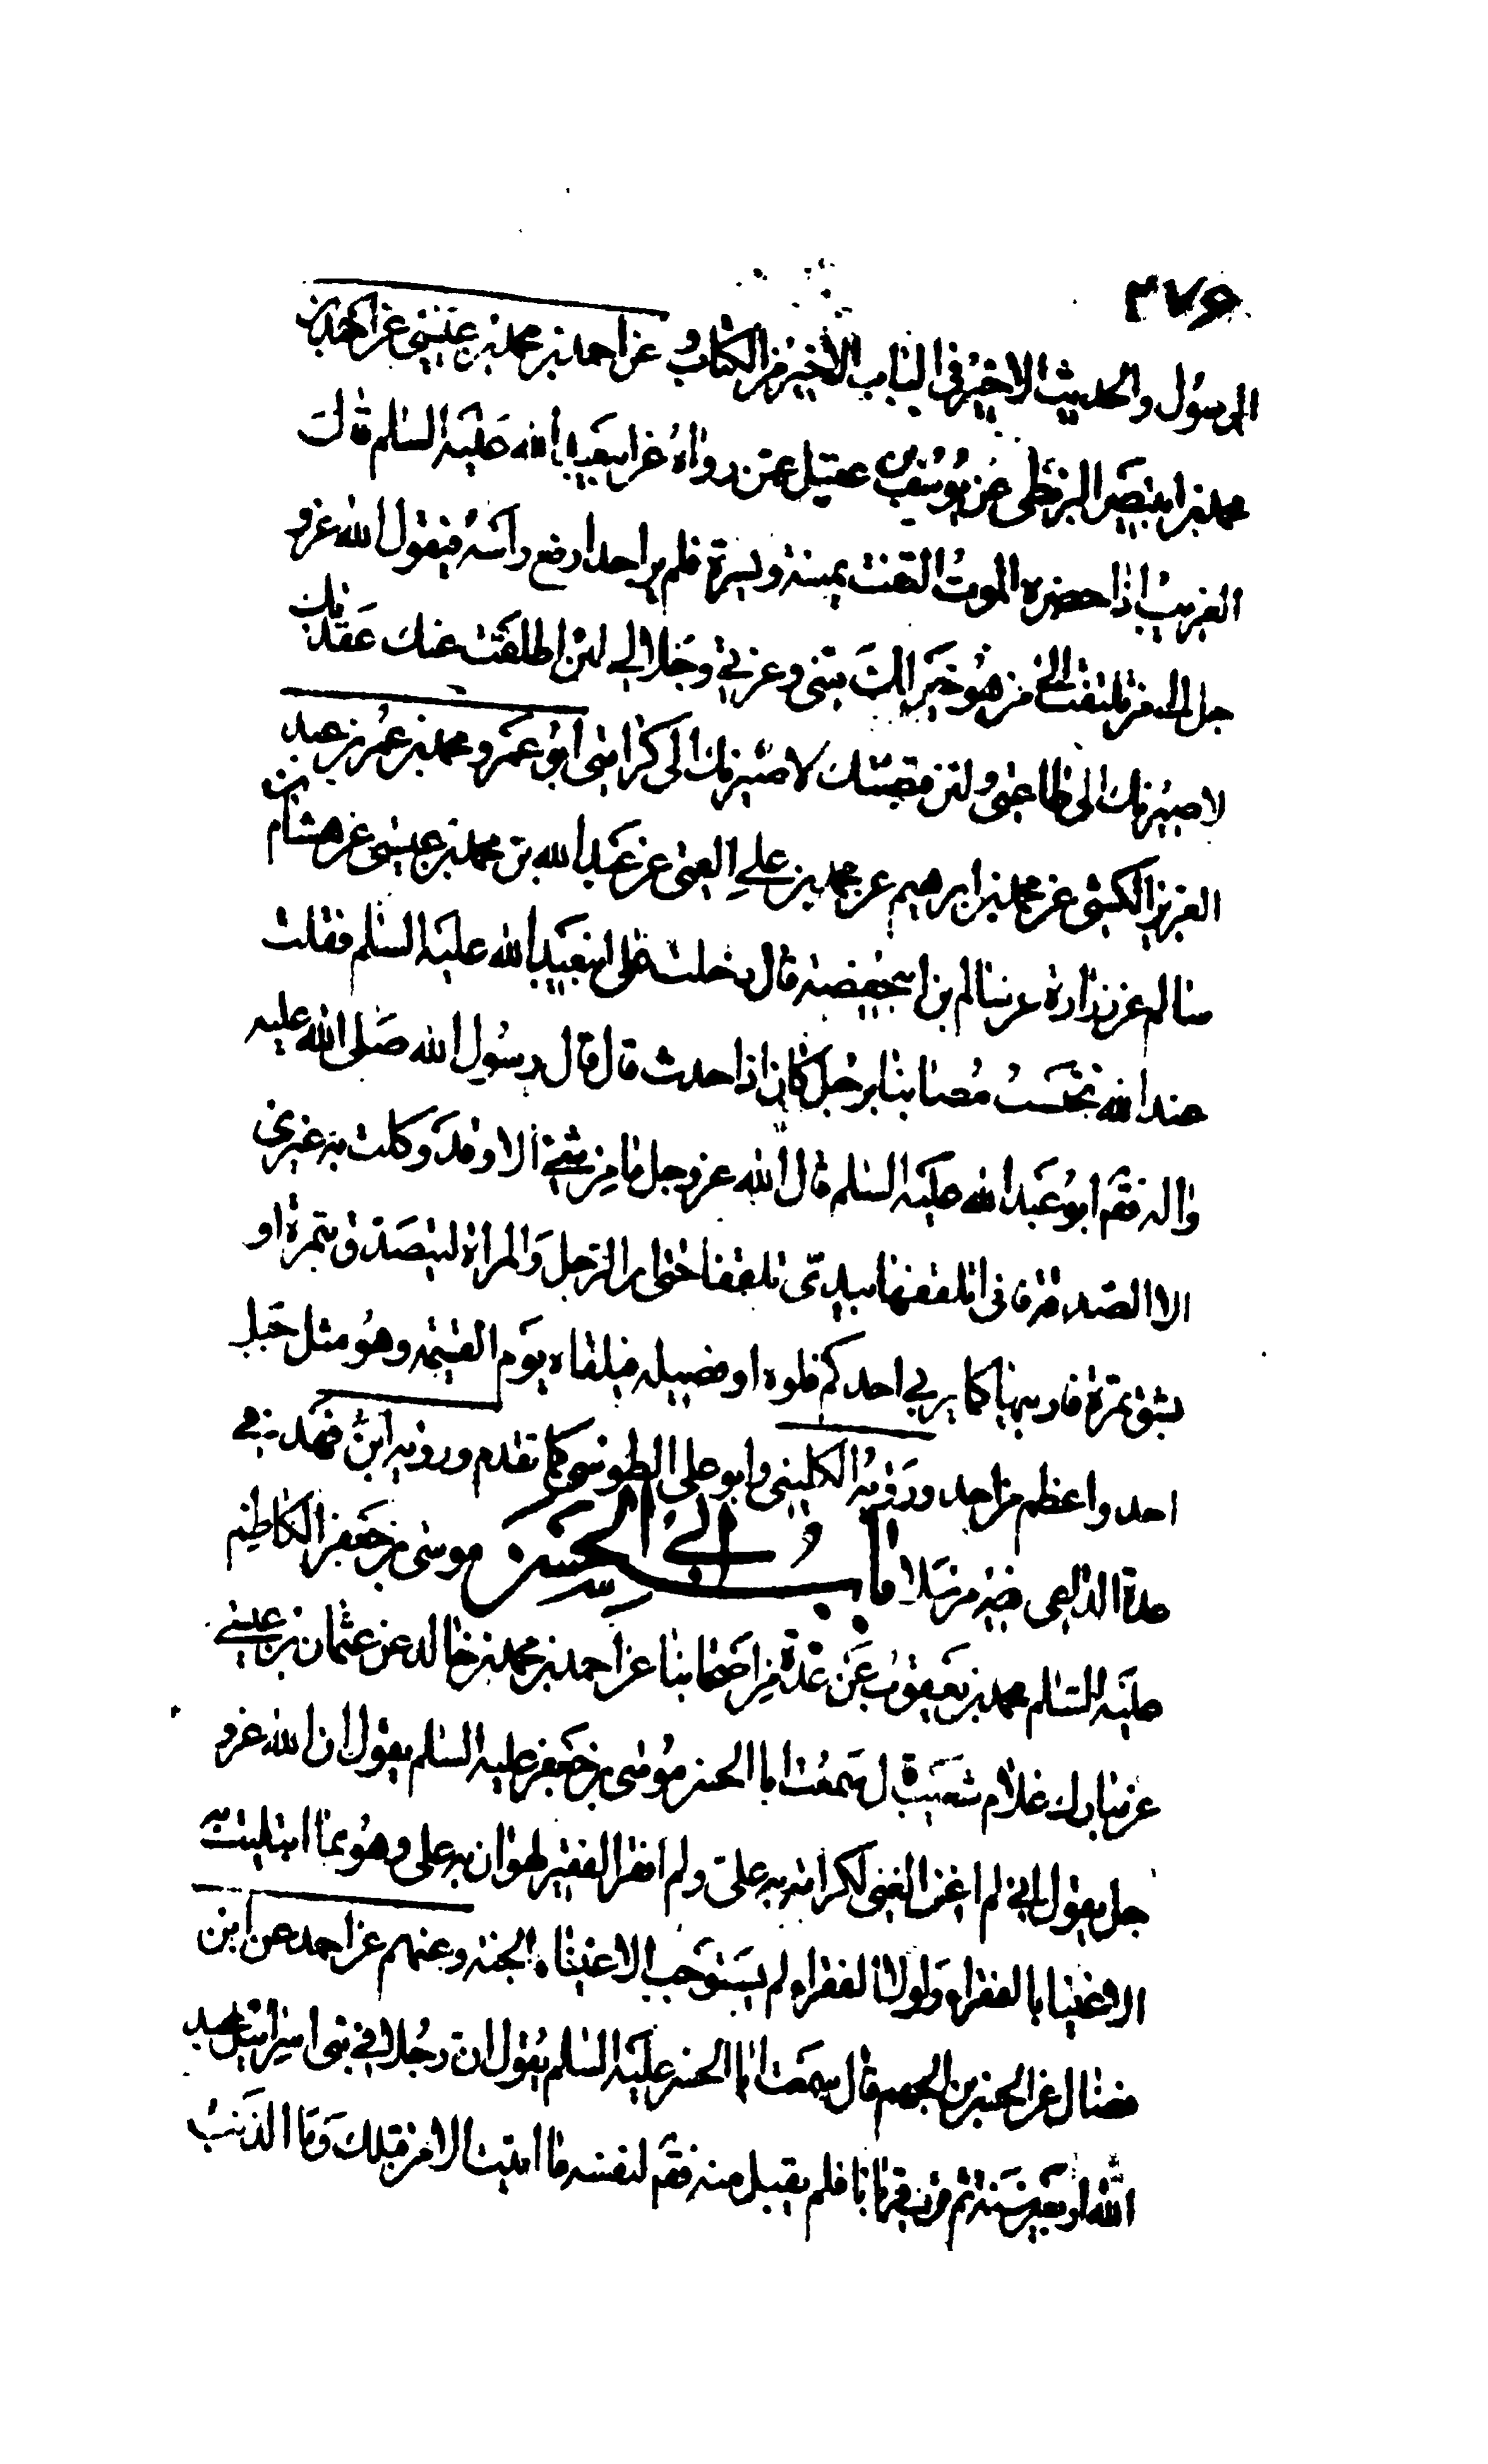 ٣٧٥
الرسول والحديث الاخير في الباب الاخير من الكتاب وعن احمد بن محمد بن عيسى عن احمد بن
محمد بن ابي نصر البزنطي عن يوسف بن عقيل عمن رواه عن ابي عبد الله عليه السلم قال
الغريب اذا حضره الموت التفت يمنة ويسرة فلم ير احدا رفع رأسه فيقول الله عز و
جل الى من تلتفت الى من هو خير لك مني وعزتي وجلالي لئن اطلقت عنك عقدتك
لاصيرنك الى طاعتي ولئن قبضتك لاصيرنك الى كرامتي ابو عمرو محمد بن عمر بن عبد
العزيز الكشي عن محمد بن ابرهيم عن محمد بن علي القمي عن عبد الله بن محمد بن عيسى عن هشام بن
سالم عن زرارة عن سالم بن ابي حفصة قال دخلت على ابي عبد الله عليه السلم فقلت
عند الله نحتسب مصابنا برجل كان اذا حدث قال قال رسول الله صلى الله عليه
واله فقم ابو عبد الله عليه السلم قال الله عز وجل ما من شيء الا وقد وكلت به غيري
الا الصدقة فاني اتلقفها بيدي تلقفا حتى ان الرجل والمراة ليتصدق بتمرة او
بشق تمرة فاربيها كما يربي احدكم فلوه او فصيله فيلقاه يوم القيمة وهو مثل جبل
احد واعظم من احد ورويه الكليني وابو علي الطوسي كما تقدم ورويه ابن فهد في
عدة الداعي خبر مرسلا باب ابي الحسن موسى بن جعفر الكاظم
عليه السلم محمد بن يعقوب عن عدة من اصحابنا عن احمد بن محمد بن خالد عن عثمان بن عيسى
عن مبارك غلام شعيب ق ل سمعت ابا الحسن موسى بن جعفر عليه السلم يقول ان الله عز و
جل يقول اني لم اغن الغني لكرامة به علي ولم افقر الفقير لهوان به علي وهو مما ابتليت به
الاغنيا بالفقراء ولولا الفقراء لم يستوجب الاغنياء الجنة وعنهم عن احمد عن ابن
فضال عن الحسن بن الجهم قال سمعت ابا الحسن عليه السلم يقول ان رجلا في بني اسرائيل عبد
الله اربعين سنة ثم قرب قربانا فلم يقبل منه فقم لنفسه ما اتيت الا من قبلك وما الذنب